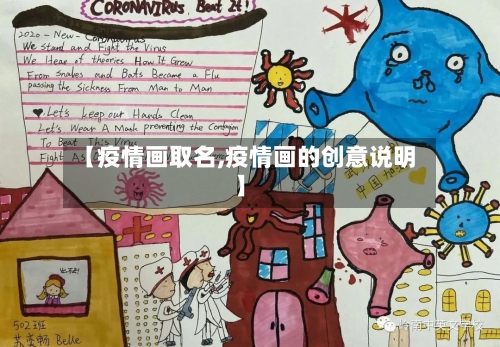 CORONAVIRUS, Beat It!
2020-New-Coronavirus
We Stand and Fight the Virus
We Hear of theories How It Grew
From Snakes and Bats Became a Flu
passing the Sickness From Man to Man
Let's keep our Hands Clean
Let's Wear A Mask preventing the Contagion
To Beat This Virus
Fight As
【疫情画取名,疫情画的创意说明
】
武
中国加
502班
Belle